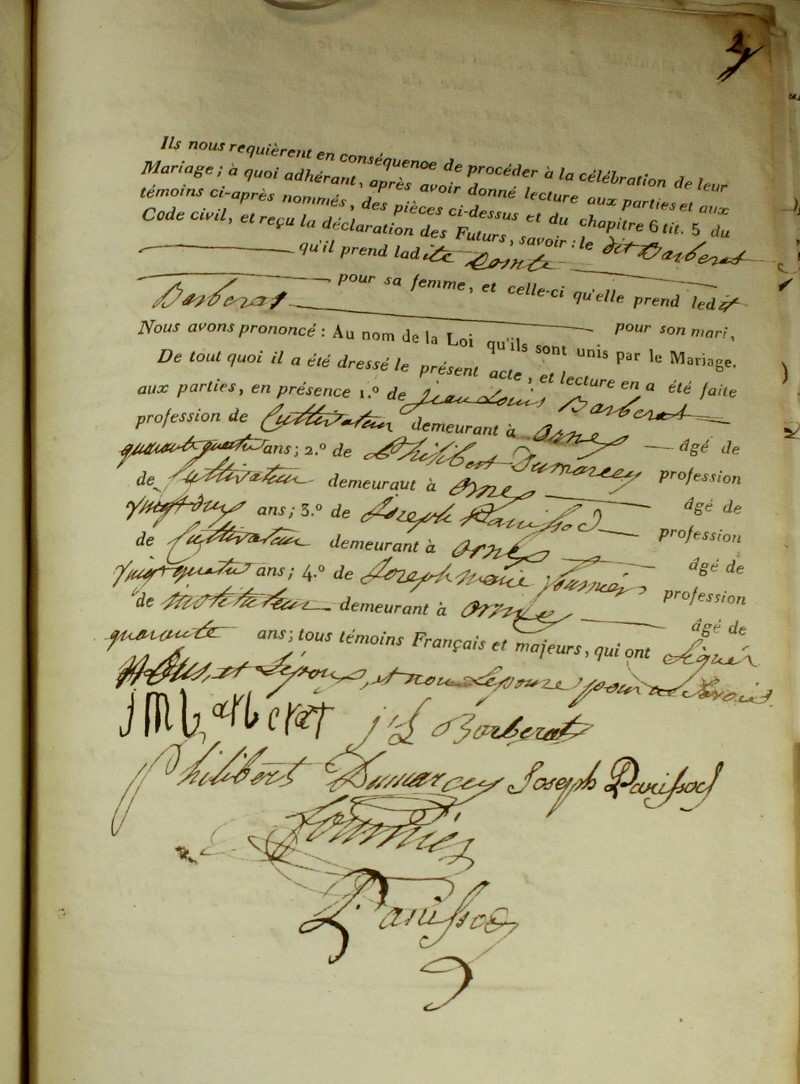 2
Ils nous requièrent en conséquence de procéder à la célébration de leur
Mariage ; à quoi adhérant, après avoir donné lecture aux parties et aux
témoins ci-après nommés, des pièces ci-dessus et du chapitre 6 tit. 5 du
Code civil, et reçu la déclaration des Futurs, savoir : le dit Barberat
qu'il prend ladite Comte
pour sa femme, et celle-ci qu'elle prend ledit
Barberat pour son mari,
Nous avons prononcé : Au nom de la Loi qu'ils sont unis par le Mariage.
De tout quoi il a été dressé le présent acte, et lecture en a été faite
aux parties, en présence 1.° de Jean Louis Barberat
profession de Cultivateur demeurant à Ornex âgé de
quarante quatre ans ; 2.° de Philibert Dumarcey profession
de Cultivateur demeurant à Ornex âgé de
ans ; 3.° de Joseph Panissod profession
de Cultivateur demeurant à Ornex âgé de
vingt quatre ans ; 4.° de Joseph Marie fournier profession
de instituteur demeurant à Ornex âgé de
quarante ans ; tous témoins Français et majeurs, qui ont signés
Nous, et L'époux, et non L'épouse pour ne Savoir.
j M barberat j L Barberat
Philibert Dumarcey Joseph Panissod
fournier
Panissod